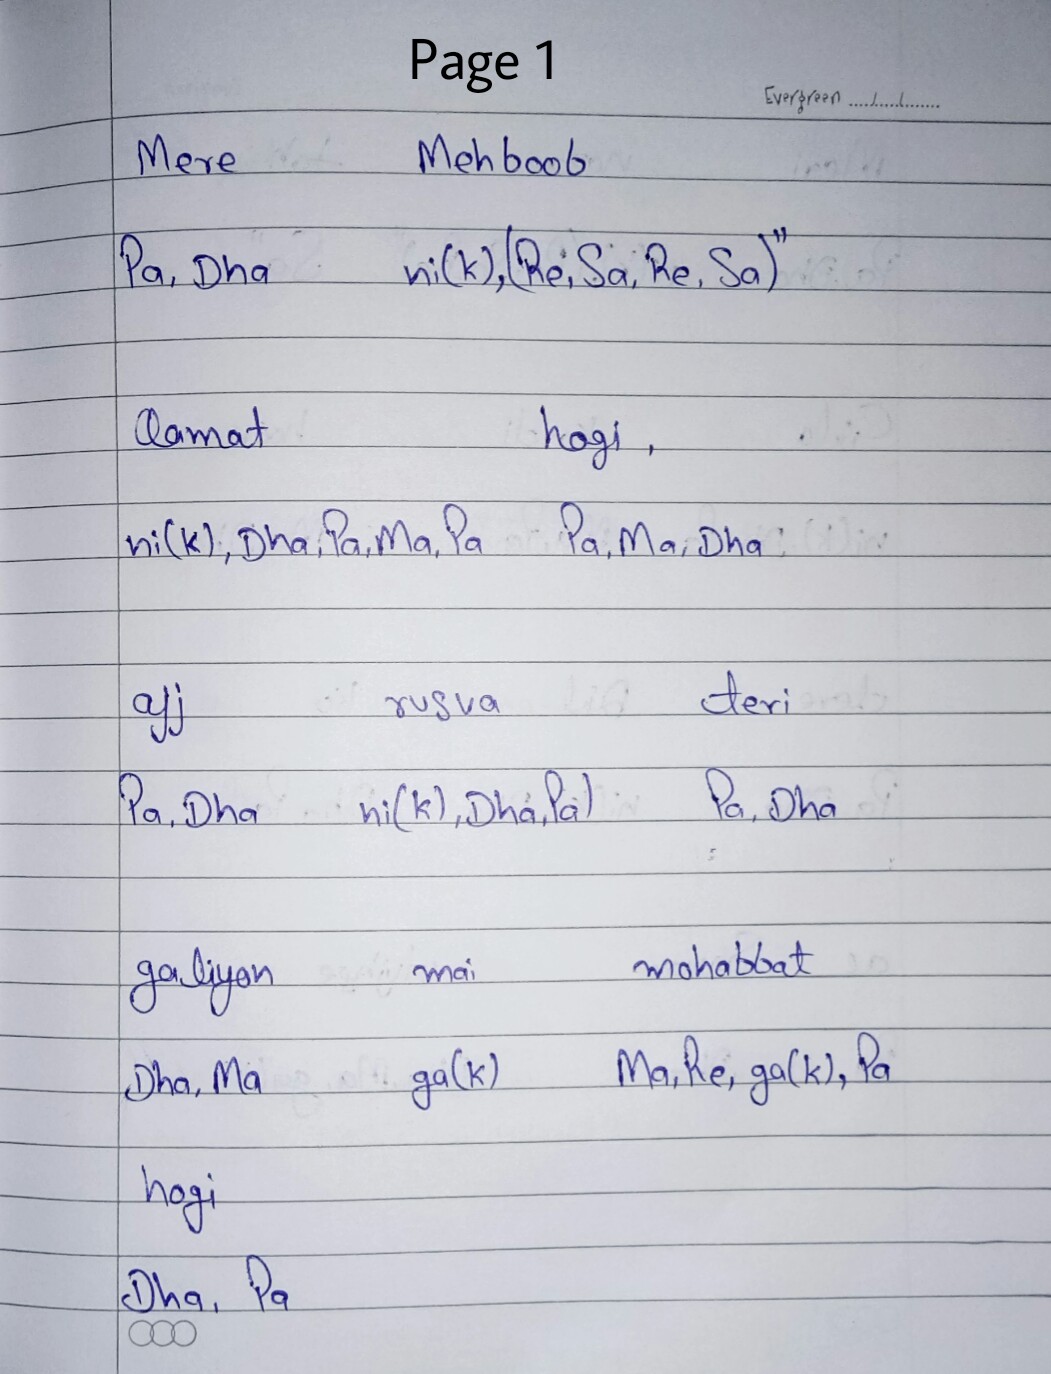 Page 1
Evergreen ...../...../.......
Mere Mehboob
Pa, Dha ni(k),(Re, Sa, Re, Sa)"
Qamat hogi,
ni(k), Dha, Pa, Ma, Pa Pa, Ma, Dha
ajj rusva teri
Pa, Dha ni(k), Dha, Pa) Pa, Dha
galiyon mai mohabbat
Dha, Ma ga(k) Ma, Re, ga(k), Pa
hogi
Dha, Pa